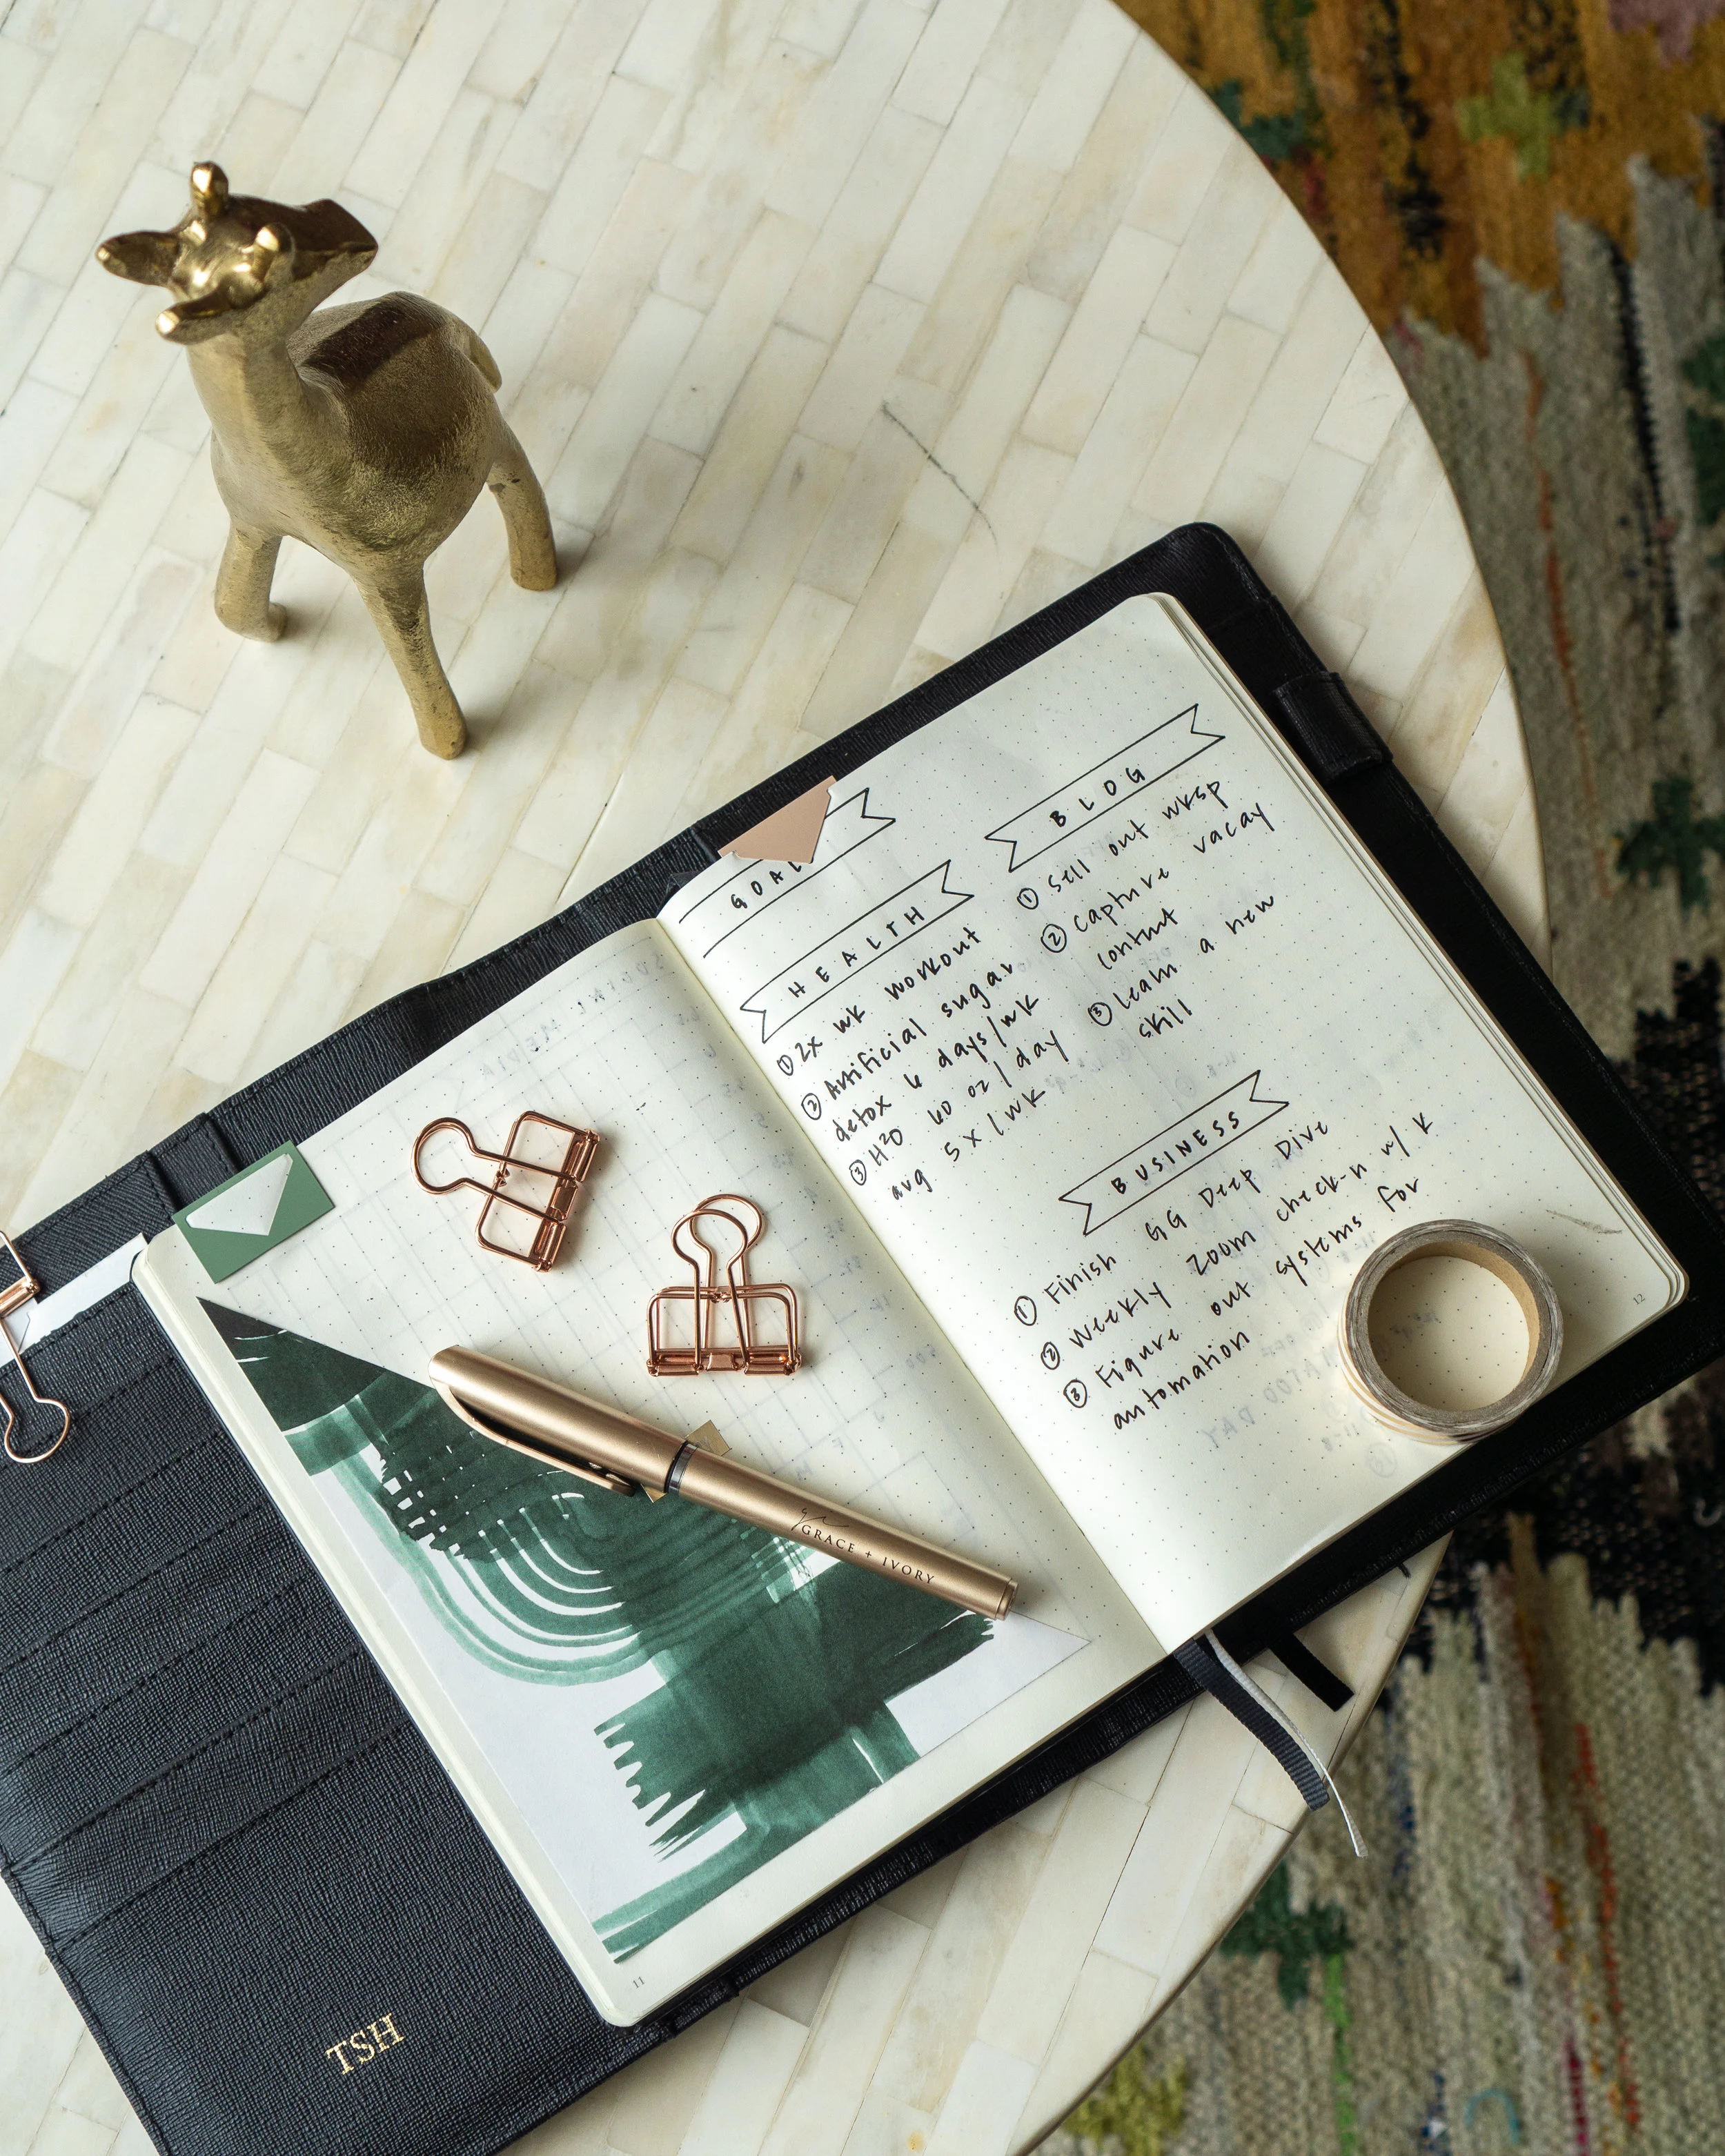 GOAL
HEALTH
① 2x wk workout
② Artificial sugar
detox 6 days/wk
③ H2O 60 oz/day
avg 5x/wk
BLOG
① sell out wksp
② capture vacay
content
③ learn a new
skill
BUSINESS
① Finish GG Deep Dive
② Weekly zoom check-n w/ K
③ Figure out systems for
automation
12
GRACE + IVORY
11
TSH